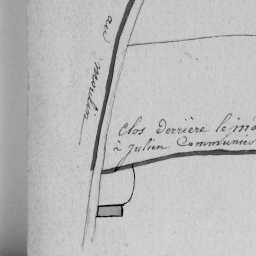 au moulin
Clos derrière le
à Julien Communier